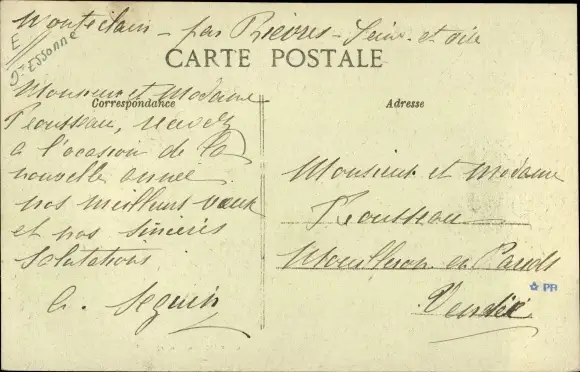 Montéclain - par Bièvres - Seine-et-Oise
E
Dt Essonne
CARTE POSTALE
Correspondance
Adresse
Monsieur et Madame
Rousseau, recevez
a l'ocasion de la
nouvelle année
nos meilleurs vœux
et nos sincères
salutations
Seguin
Monsieur et Madame
Rousseau
Mouilleron en Pareds
Vendée
PR